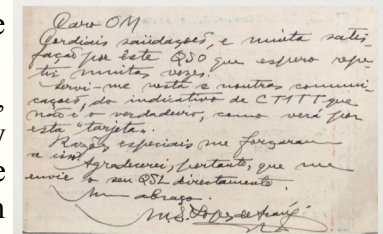 Caro OM
Cordiais saüdações, e muita satis-
fação por este QSO que espero repe-
tir muitas vezes.
Servi-me neste e noutros comuni-
cações, do indicativo de CT1TT que
não é o verdadeiro, como verá por
esta "tarjeta".
Razões especiais me forçaram
a isso. Agradecerei, portanto, que me
envie o seu QSL directamente.
Um abraço.
M. S. Lopes de